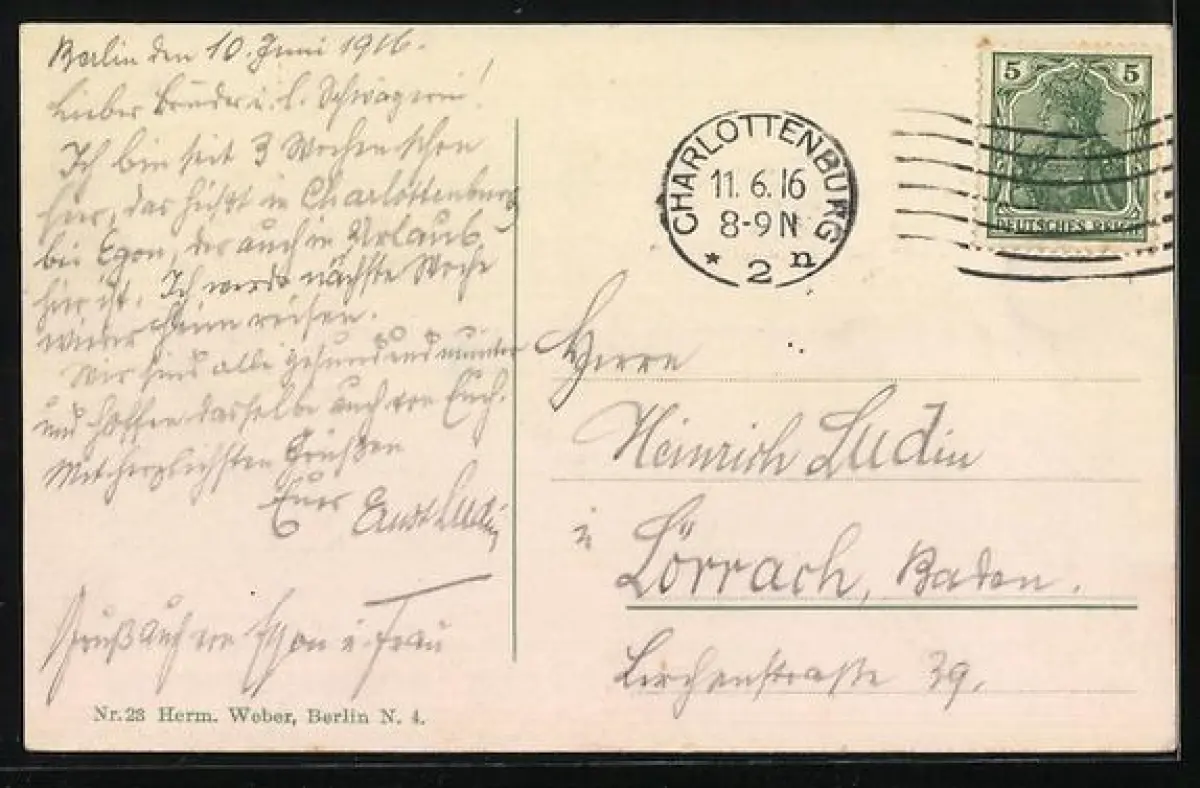 Berlin den 10. Juni 1916.
Lieber Bruder u. l. Schwägerin!
Ich bin seit 3 Wochen schon
hier, das heißt in Charlottenburg
bei Egon, der auch in Urlaub
hier ist. Ich werde nächste Woche
wieder heim reisen.
Wir sind alle gesund und munter
und hoffen dasselbe auch von Euch.
Mit herzlichsten Grüßen
Euer Ernst Ludin
Gruß auch von Egon u. Frau
Nr. 23 Herm. Weber, Berlin N. 4.
CHARLOTTENBURG
11. 6. 16
8-9 N
* 2 n
5 5
DEUTSCHES REICH
Herrn
Heinrich Ludin
in Lörrach, Baden.
Lerchenstraße 39.